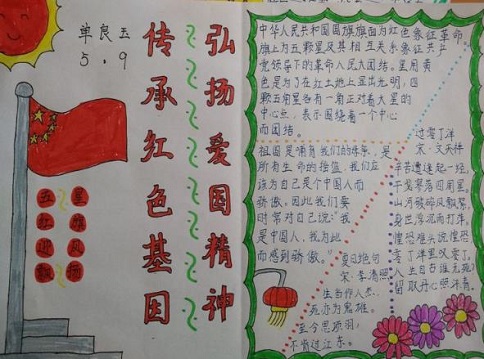 单良玉
5.9
弘扬爱国精神
传承红色基因
五星
红旗
迎风
飘扬
中华人民共和国国旗旗面为红色象征革命,
旗上为五颗星及其相互关系象征共产
党领导下的革命人民大团结。星用黄
色是为了在红土地上显出光明,四
颗五角星各有一角正对着大星的
中心点,表示围绕着一个中心
而团结。
祖国是哺育我们的母亲,是
所有生命的摇篮,我们应
该为自己是个中国人而
骄傲。因此我们要
时常对自己说:我
是中国人,我为此
而感到骄傲。
过零丁洋
宋·文天祥
辛苦遭逢起一经,
干戈寥落四周星。
山河破碎风飘絮,
身世浮沉雨打萍。
惶恐滩头说惶恐,
零丁洋里叹零丁。
人生自古谁无死,
留取丹心照汗青。
夏日绝句
宋·李清照
生当作人杰,
死亦为鬼雄。
至今思项羽,
不肯过江东。